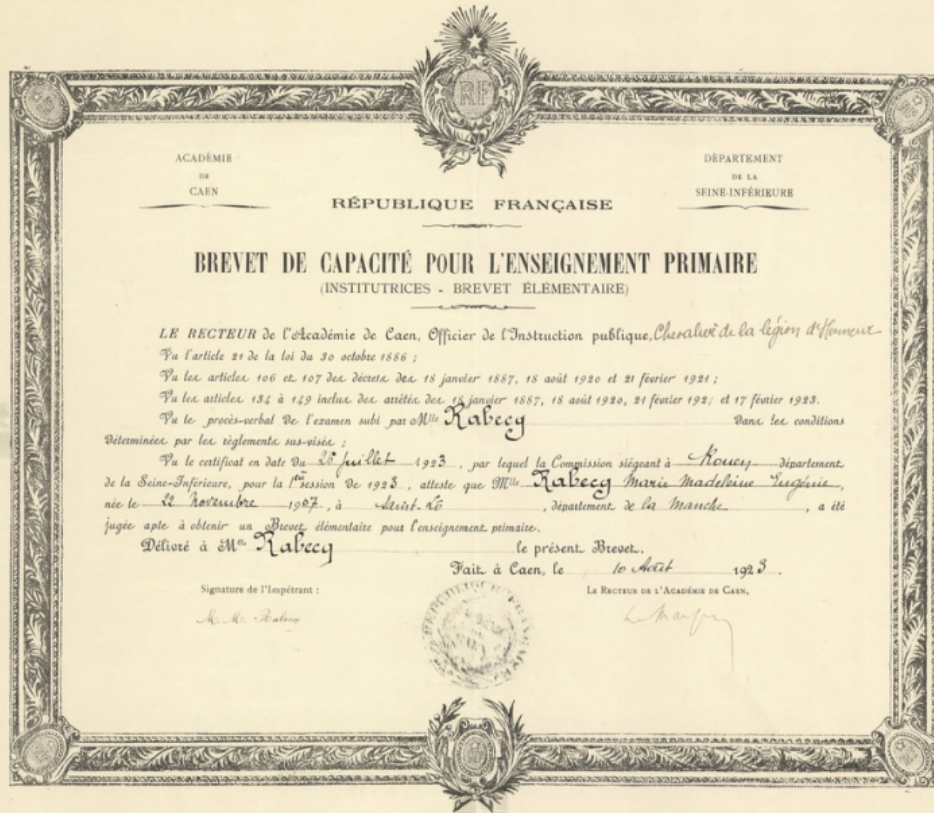 RF
ACADÉMIE
DE
CAEN
DÉPARTEMENT
DE LA
SEINE-INFÉRIEURE
RÉPUBLIQUE FRANÇAISE
BREVET DE CAPACITÉ POUR L'ENSEIGNEMENT PRIMAIRE
(INSTITUTRICES - BREVET ÉLÉMENTAIRE)
LE RECTEUR de l'Académie de Caen, Officier de l'Instruction publique, Chevalier de la légion d'Honneur
Vu l'article 21 de la loi du 30 octobre 1886 ;
Vu les articles 106 et 107 des décrets des 18 janvier 1887, 18 août 1920 et 21 février 1921 ;
Vu les articles 134 à 149 inclus des arrêtés des 18 janvier 1887, 18 août 1920, 21 février 192; et 17 février 1923.
Vu le procès-verbal de l'examen subi par Mlle Rabecq Dans les conditions
déterminées par les règlements sus-visés ;
Vu le certificat en date du 26 juillet 1923, par lequel la Commission siégeant à Rouen département
de la Seine-Inférieure, pour la 1ère session de 1923, atteste que Mlle Rabecq Marie Madeleine Eugénie,
née le 22 novembre 1907, à Saint-Lô, département de la Manche, a été
jugée apte à obtenir un Brevet élémentaire pour l'enseignement primaire.
Délivré à Mlle Rabecq le présent Brevet.
Fait à Caen, le 10 Août 1923.
Signature de l'Impétrant :
LE RECTEUR DE L'ACADÉMIE DE CAEN,
M. M. Rabecq